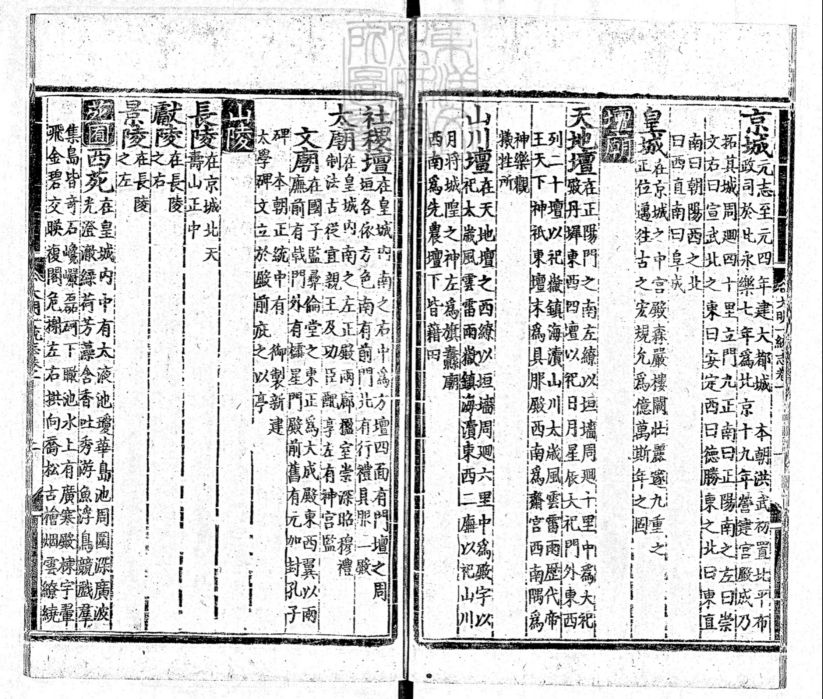 京城元志至元四年建大都城　本朝洪武初置北平布
政司於此永樂七年為北京十九年營建宮殿成乃
拓其城周廻四十里立門九正南曰正陽南之左曰崇
文右曰宣武北之東曰安定西曰德勝東之北曰東直
南曰朝陽西之北
曰西直南曰阜成
皇城在京城之中宮殿森嚴樓闕壯麗邃九重之
正位邁往古之宏規允為億萬斯年之固
壇廟
天地壇在正陽門之南左繚以垣墻周廻十里中為大祀
殿丹墀東西四壇以祀日月星辰大祀門外東西
列二十壇以祀嶽鎮海瀆山川太歲風雲雷雨歷代帝
王天下神祇東壇末為具服殿西南為齋宮西南隅為
神樂觀
犧牲所
山川壇在天地壇之西繚以垣墻周廻六里中為殿宇以
祀太歲風雲雷雨嶽鎮海瀆東西二廡以祀山川
月將城隍之神左為旗纛廟
西南為先農壇下皆籍田
大明一統志卷一
社稷壇在皇城內南之右中為方壇四面有門壇之周
垣各依方色南有前門北有行禮具服二殿
太廟在皇城內南之左正殿兩廊楹室崇深昭穆禮
制法古從宜親王及功臣配享左有神宮監
文廟在國子監彝倫堂之東正為大成殿東西翼以兩
廡前有戟門外有櫺星門殿前舊有元加封孔子
碑　本朝正統中有　御製新建
太學碑文立於殿前庇之以亭
山陵
長陵在京城北天
壽山正中
獻陵在長陵
之右
景陵在長陵
之左
苑囿
西苑在皇城內中有太液池瓊華島池周圍深廣波
光澄澈綠荷芳藻含香吐秀游魚浮鳥競戲羣
集島皆奇石巉巖磊砢下瞰池水上有廣寒殿棟宇翬
飛金碧交暎複閣危榭左右拱向喬松古檜烟雲繚繞